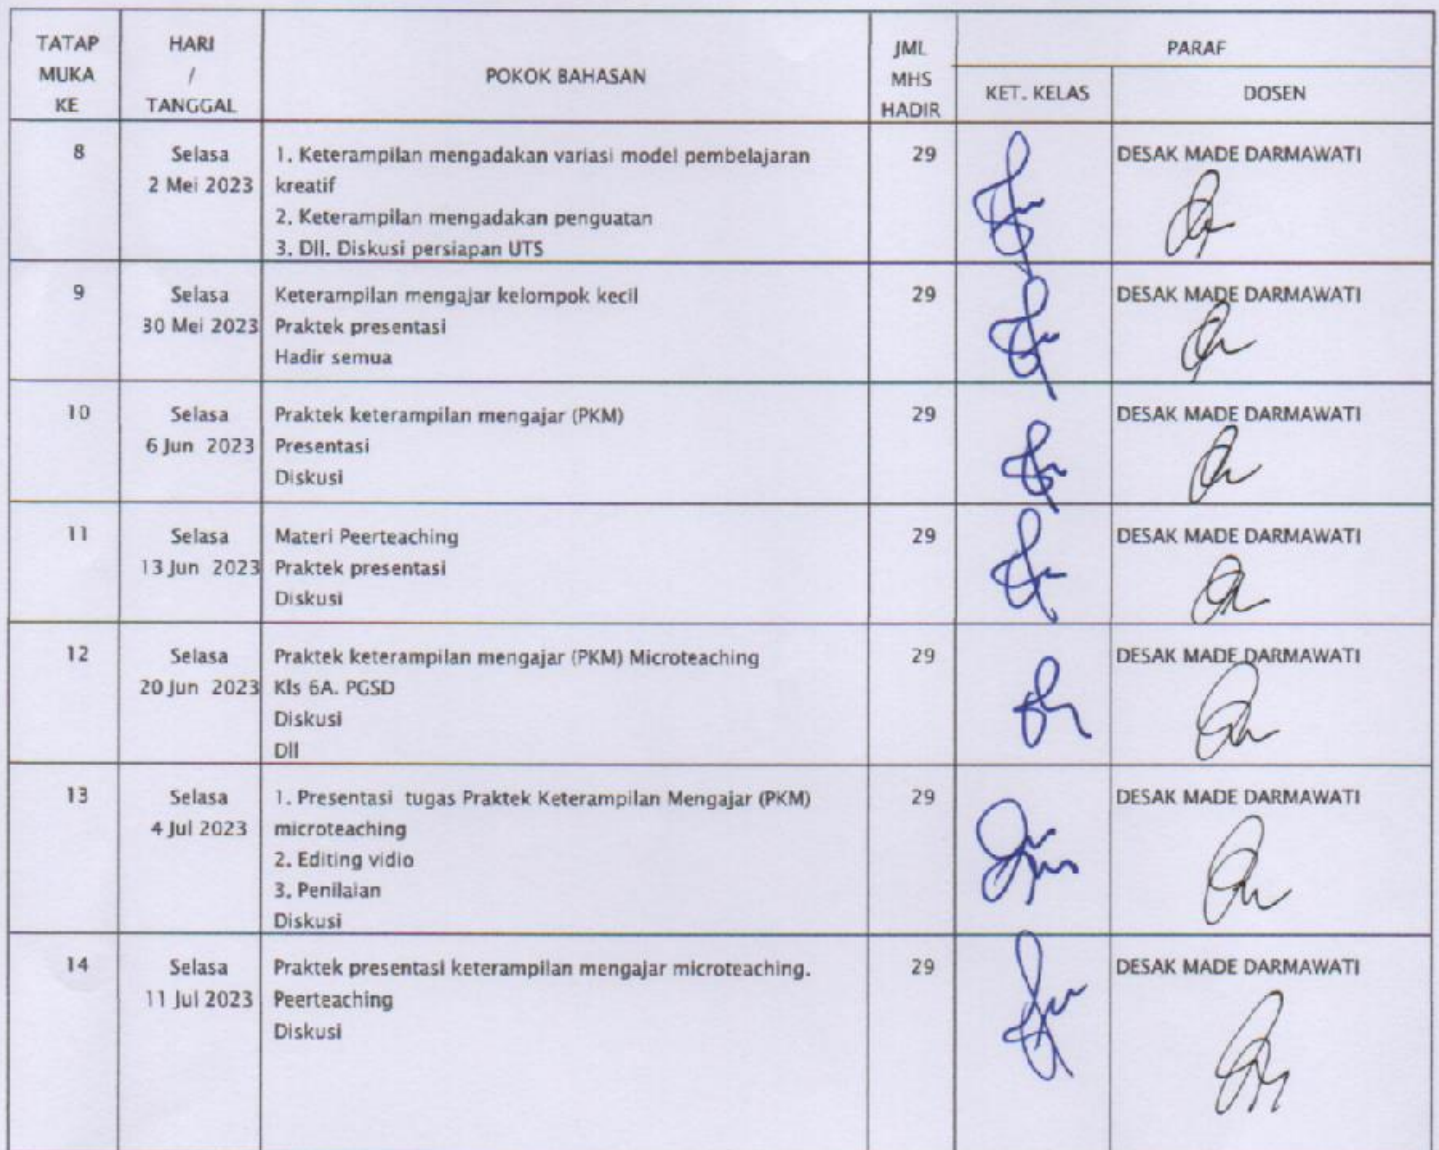 TATAP MUKA KE
HARI / TANGGAL
POKOK BAHASAN
JML MHS HADIR
PARAF
KET. KELAS
DOSEN
8
Selasa
2 Mei 2023
1. Keterampilan mengadakan variasi model pembelajaran
kreatif
2. Keterampilan mengadakan penguatan
3. Dll. Diskusi persiapan UTS
29
DESAK MADE DARMAWATI
9
Selasa
30 Mei 2023
Keterampilan mengajar kelompok kecil
Praktek presentasi
Hadir semua
29
DESAK MADE DARMAWATI
10
Selasa
6 Jun 2023
Praktek keterampilan mengajar (PKM)
Presentasi
Diskusi
29
DESAK MADE DARMAWATI
11
Selasa
13 Jun 2023
Materi Peerteaching
Praktek presentasi
Diskusi
29
DESAK MADE DARMAWATI
12
Selasa
20 Jun 2023
Praktek keterampilan mengajar (PKM) Microteaching
Kls 6A. PGSD
Diskusi
Dll
29
DESAK MADE DARMAWATI
13
Selasa
4 Jul 2023
1. Presentasi tugas Praktek Keterampilan Mengajar (PKM)
microteaching
2. Editing vidio
3. Penilaian
Diskusi
29
DESAK MADE DARMAWATI
14
Selasa
11 Jul 2023
Praktek presentasi keterampilan mengajar microteaching.
Peerteaching
Diskusi
29
DESAK MADE DARMAWATI